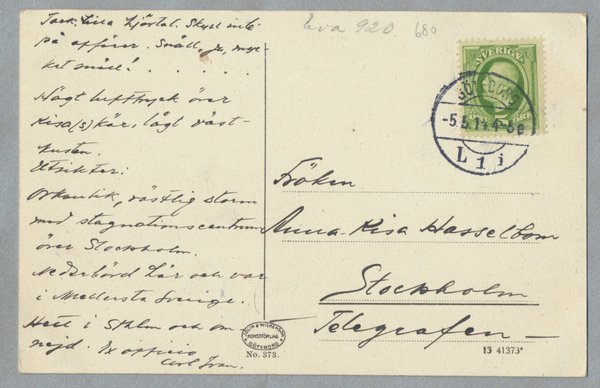 Tack, lilla hjärtat. Skyll inte
på affärer. Snäll, ja, myc-
ket snäll! . . . . . .
Högt lufttryck över
Kisa(s)kär, lågt väst-
kusten.
Utsikter:
Orkanlik, västlig storm
med stagnationscentrum
över Stockholm.
Nederbörd här och var
i Mellersta Sverige.
Hett i Sthlm och om-
nejd. Ex officio
Carl Ivan.
Eva 920. 680
SVERIGE
GÖTEBORG
-5.5.14 4-5e
L 1 i
Fröken
Anna-Lisa Hasselbom
Stockholm
Telegrafen
HOLM & WILKENSON
KONSTFÖRLAG
GÖTEBORG
No. 373.
13 41373*